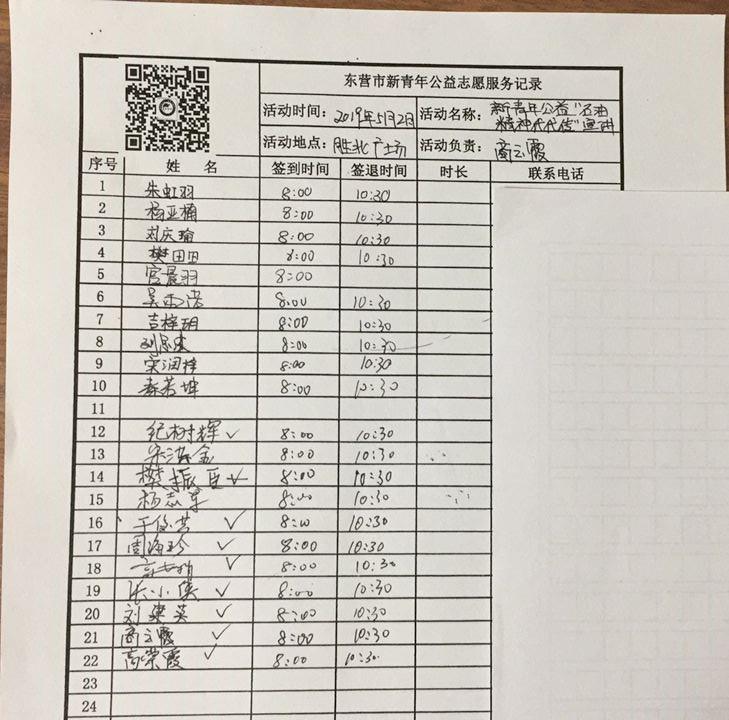 东营市新青年公益志愿服务记录
活动时间: 2019年5月2日 活动名称: 新青年公益"石油
精神代代传"宣讲
活动地点: 胜北广场 活动负责: 商云霞
序号 姓 名 签到时间 签退时间 时长 联系电话
1 朱虹羽 8:00 10:30
2 杨亚楠 8:00 10:30
3 刘庆瑜 8:00 10:30
4 樊田田 8:00 10:30
5 宫晨羽 8:00
6 吴雨诺 8:00 10:30
7 吉梓玥 8:00 10:30
8 8:00 10:30
9 宋润梓 8:00 10:30
10 秦若坤 8:00 10:30
11
12 纪树辉 ✓ 8:00 10:30
13 8:00 10:30
14 樊振 8:00 10:30
15 杨志军 8:00 10:30
16 ✓ 8:00 10:30
17 周海玲 ✓ 8:00 10:30
18 ✓ 8:00 10:30
19 张小侠 ✓ 8:00 10:30
20 刘荣英 ✓ 8:00 10:30
21 商云霞 ✓ 8:00 10:30
22 高荣霞 ✓ 8:00 10:30
23
24